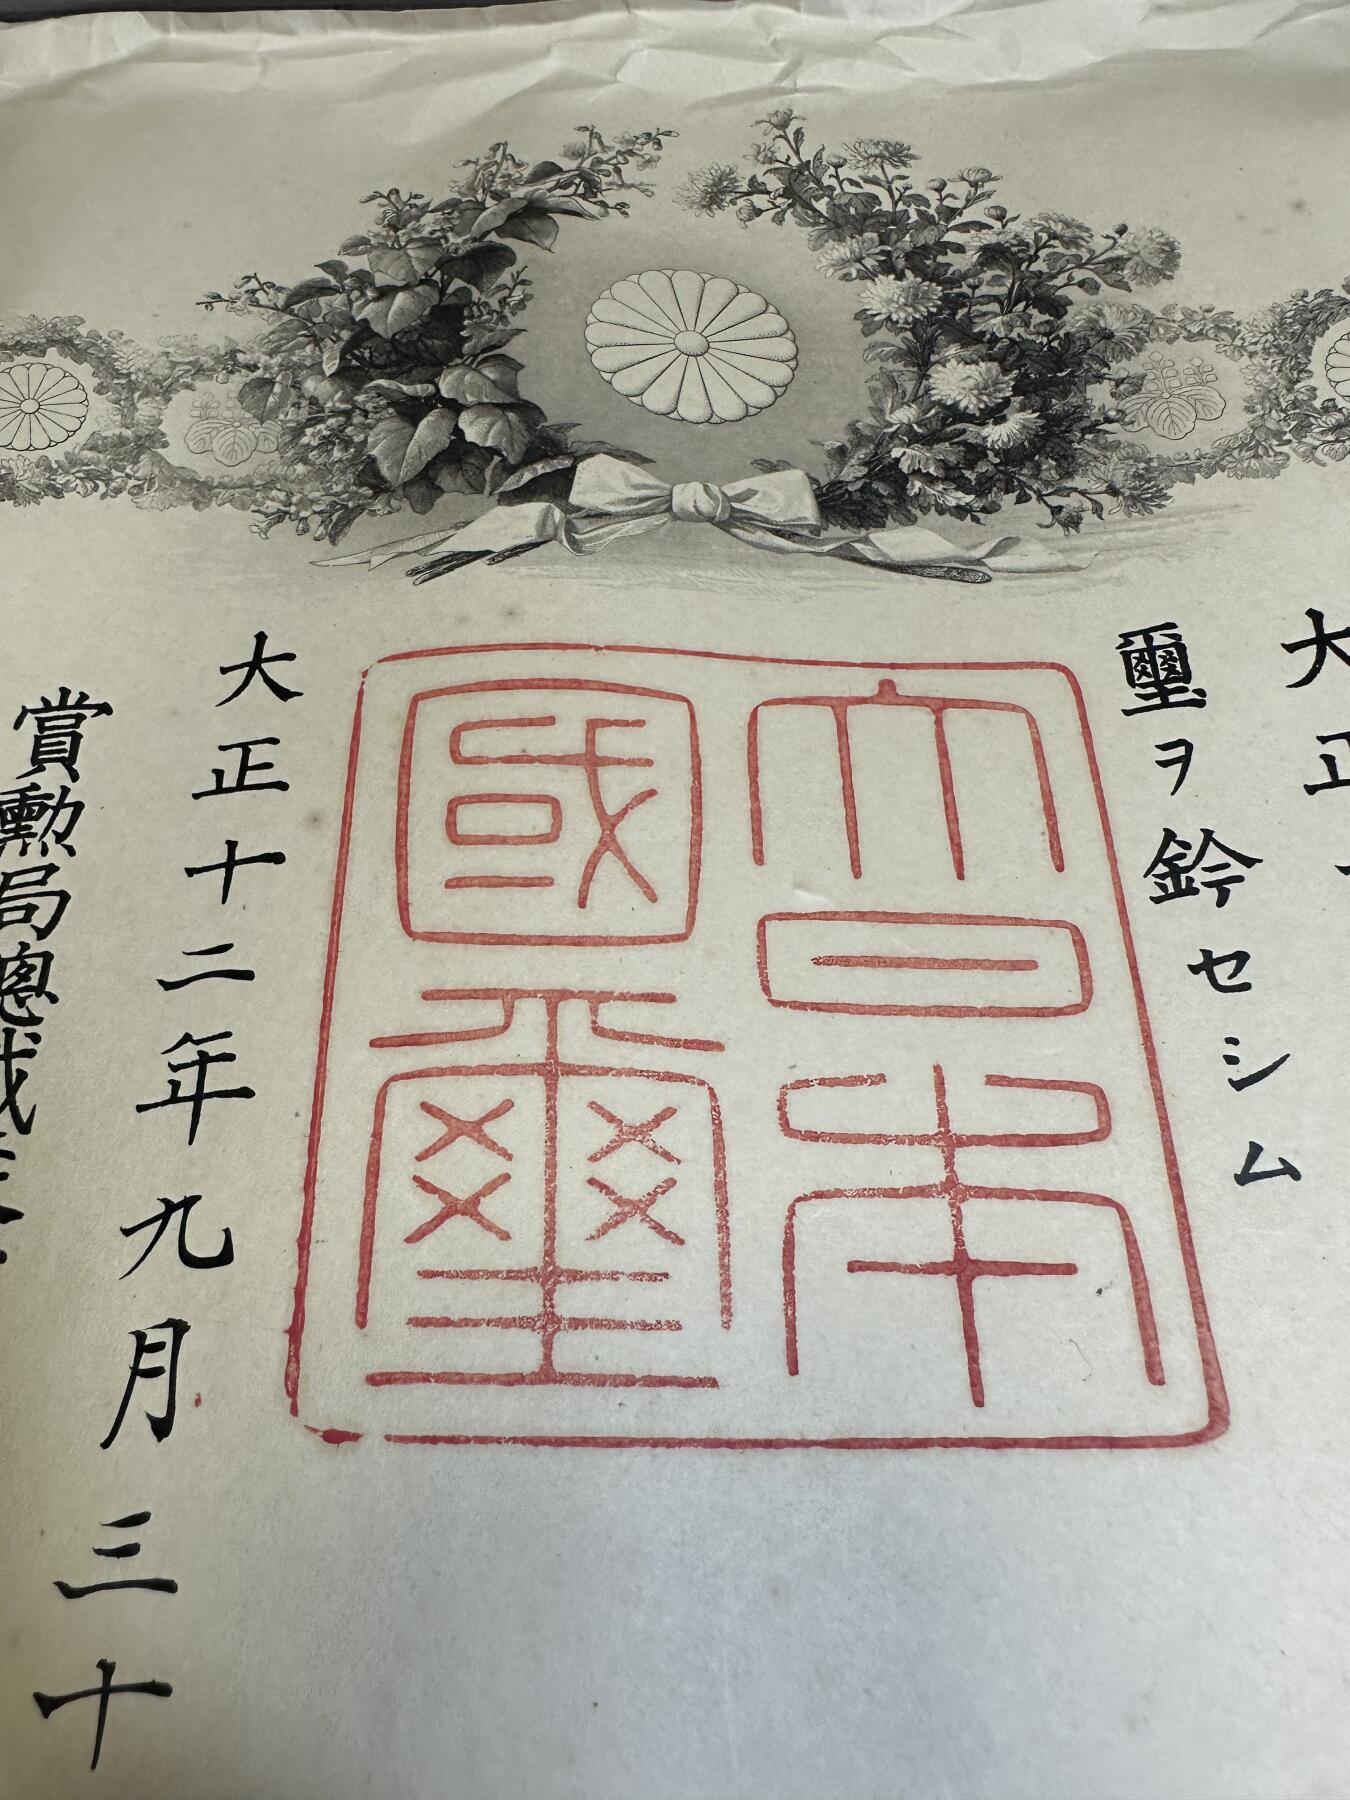 大正
璽ヲ鈐セシム
大日本
國璽
大正十二年九月三十
賞勳局總裁